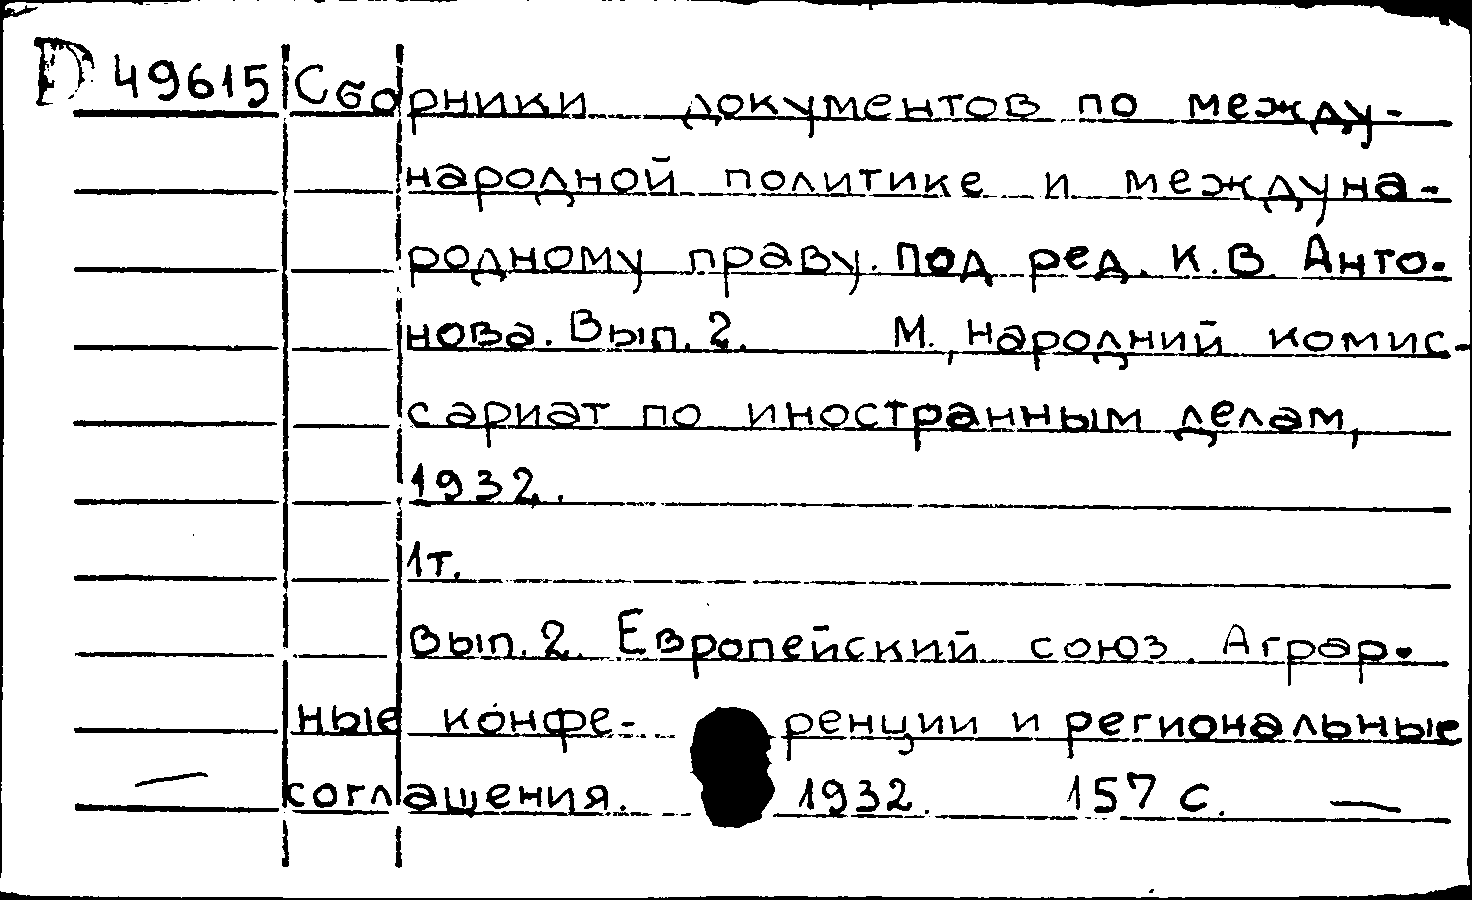 D 49615 Сборники документов по между-
народной политике и междуна-
родному праву. Под ред. К.В. Анто-
нова. Вып. 2. М., Народний комис-
сариат по иностранным делам,
1932.
1т.
Вып. 2. Европейский союз. Аграр-
ные конфе- ренции и региональные
соглашения. 1932. 157 с. —